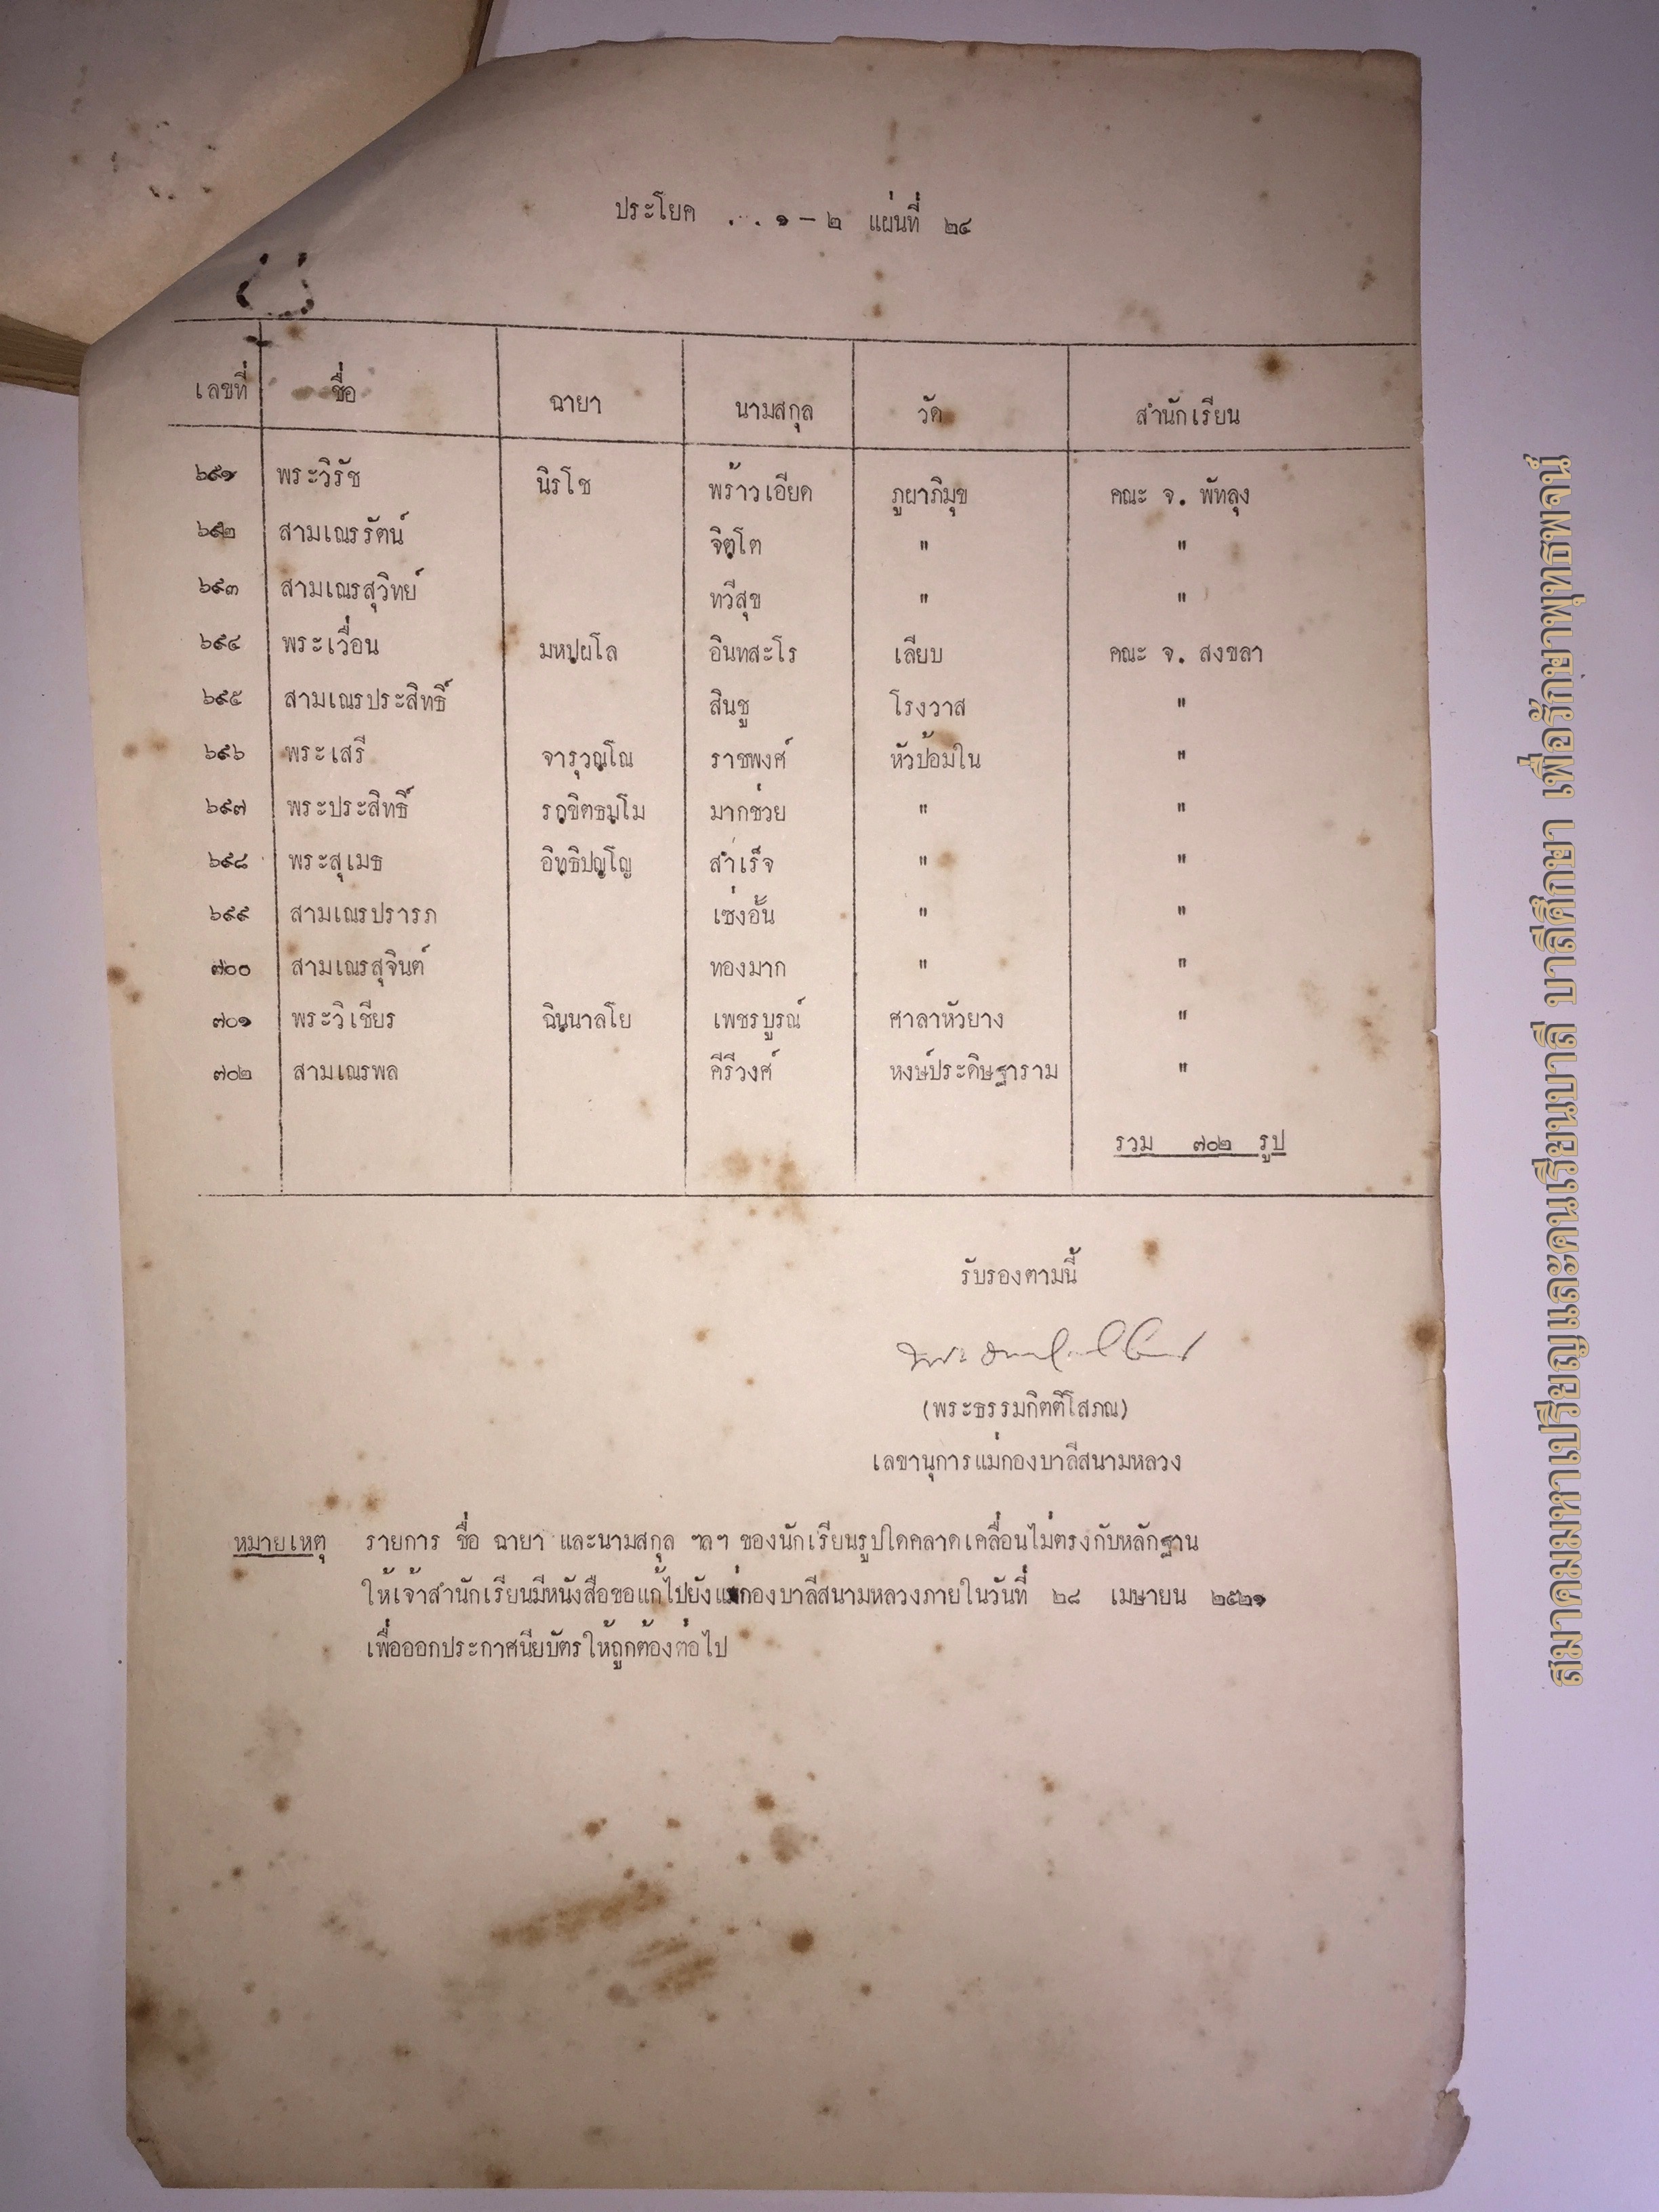 ประโยค . . ๑ - ๒ แผ่นที่ ๒๔
เลขที่ ชื่อ ฉายา นามสกุล วัด สำนักเรียน
๖๙๑ พระวิรัช นิรโช พร้าวเอียด ภูผาภิมุข คณะ จ. พัทลุง
๖๙๒ สามเณรรัตน์ จิตฺโต " "
๖๙๓ สามเณรสุวิทย์ ทวีสุข " "
๖๙๔ พระเวื่อน มหปฺผโล อินทสะโร เลียบ คณะ จ. สงขลา
๖๙๕ สามเณรประสิทธิ์ สินชู โรงวาส "
๖๙๖ พระเสรี จารุวณฺโณ ราชพงศ์ หัวป้อมใน "
๖๙๗ พระประสิทธิ์ รกฺขิตธมฺโม มากช่วย " "
๖๙๘ พระสุเมธ อิทฺธิปญฺโญ สำเร็จ " "
๖๙๙ สามเณรปรารภ เซ่งอั้น " "
๗๐๐ สามเณรสุจินต์ ทองมาก " "
๗๐๑ พระวิเชียร ฉินฺนาลโย เพชรบูรณ์ ศาลาหัวยาง "
๗๐๒ สามเณรพล คีรีวงศ์ หงษ์ประดิษฐาราม "
รวม ๗๐๒ รูป
รับรองตามนี้
(พระธรรมกิตติโสภณ)
เลขานุการแม่กองบาลีสนามหลวง
หมายเหตุ รายการ ชื่อ ฉายา และนามสกุล ฯลฯ ของนักเรียนรูปใดคลาดเคลื่อนไม่ตรงกับหลักฐาน
ให้เจ้าสำนักเรียนมีหนังสือขอแก้ไปยังแม่กองบาลีสนามหลวงภายในวันที่ ๒๘ เมษายน ๒๕๒๑
เพื่อออกประกาศนียบัตรให้ถูกต้องต่อไป
สมาคมมหาเปรียญและคนเรียนบาลี บาลีศึกษา เพื่อรักษาพุทธพจน์